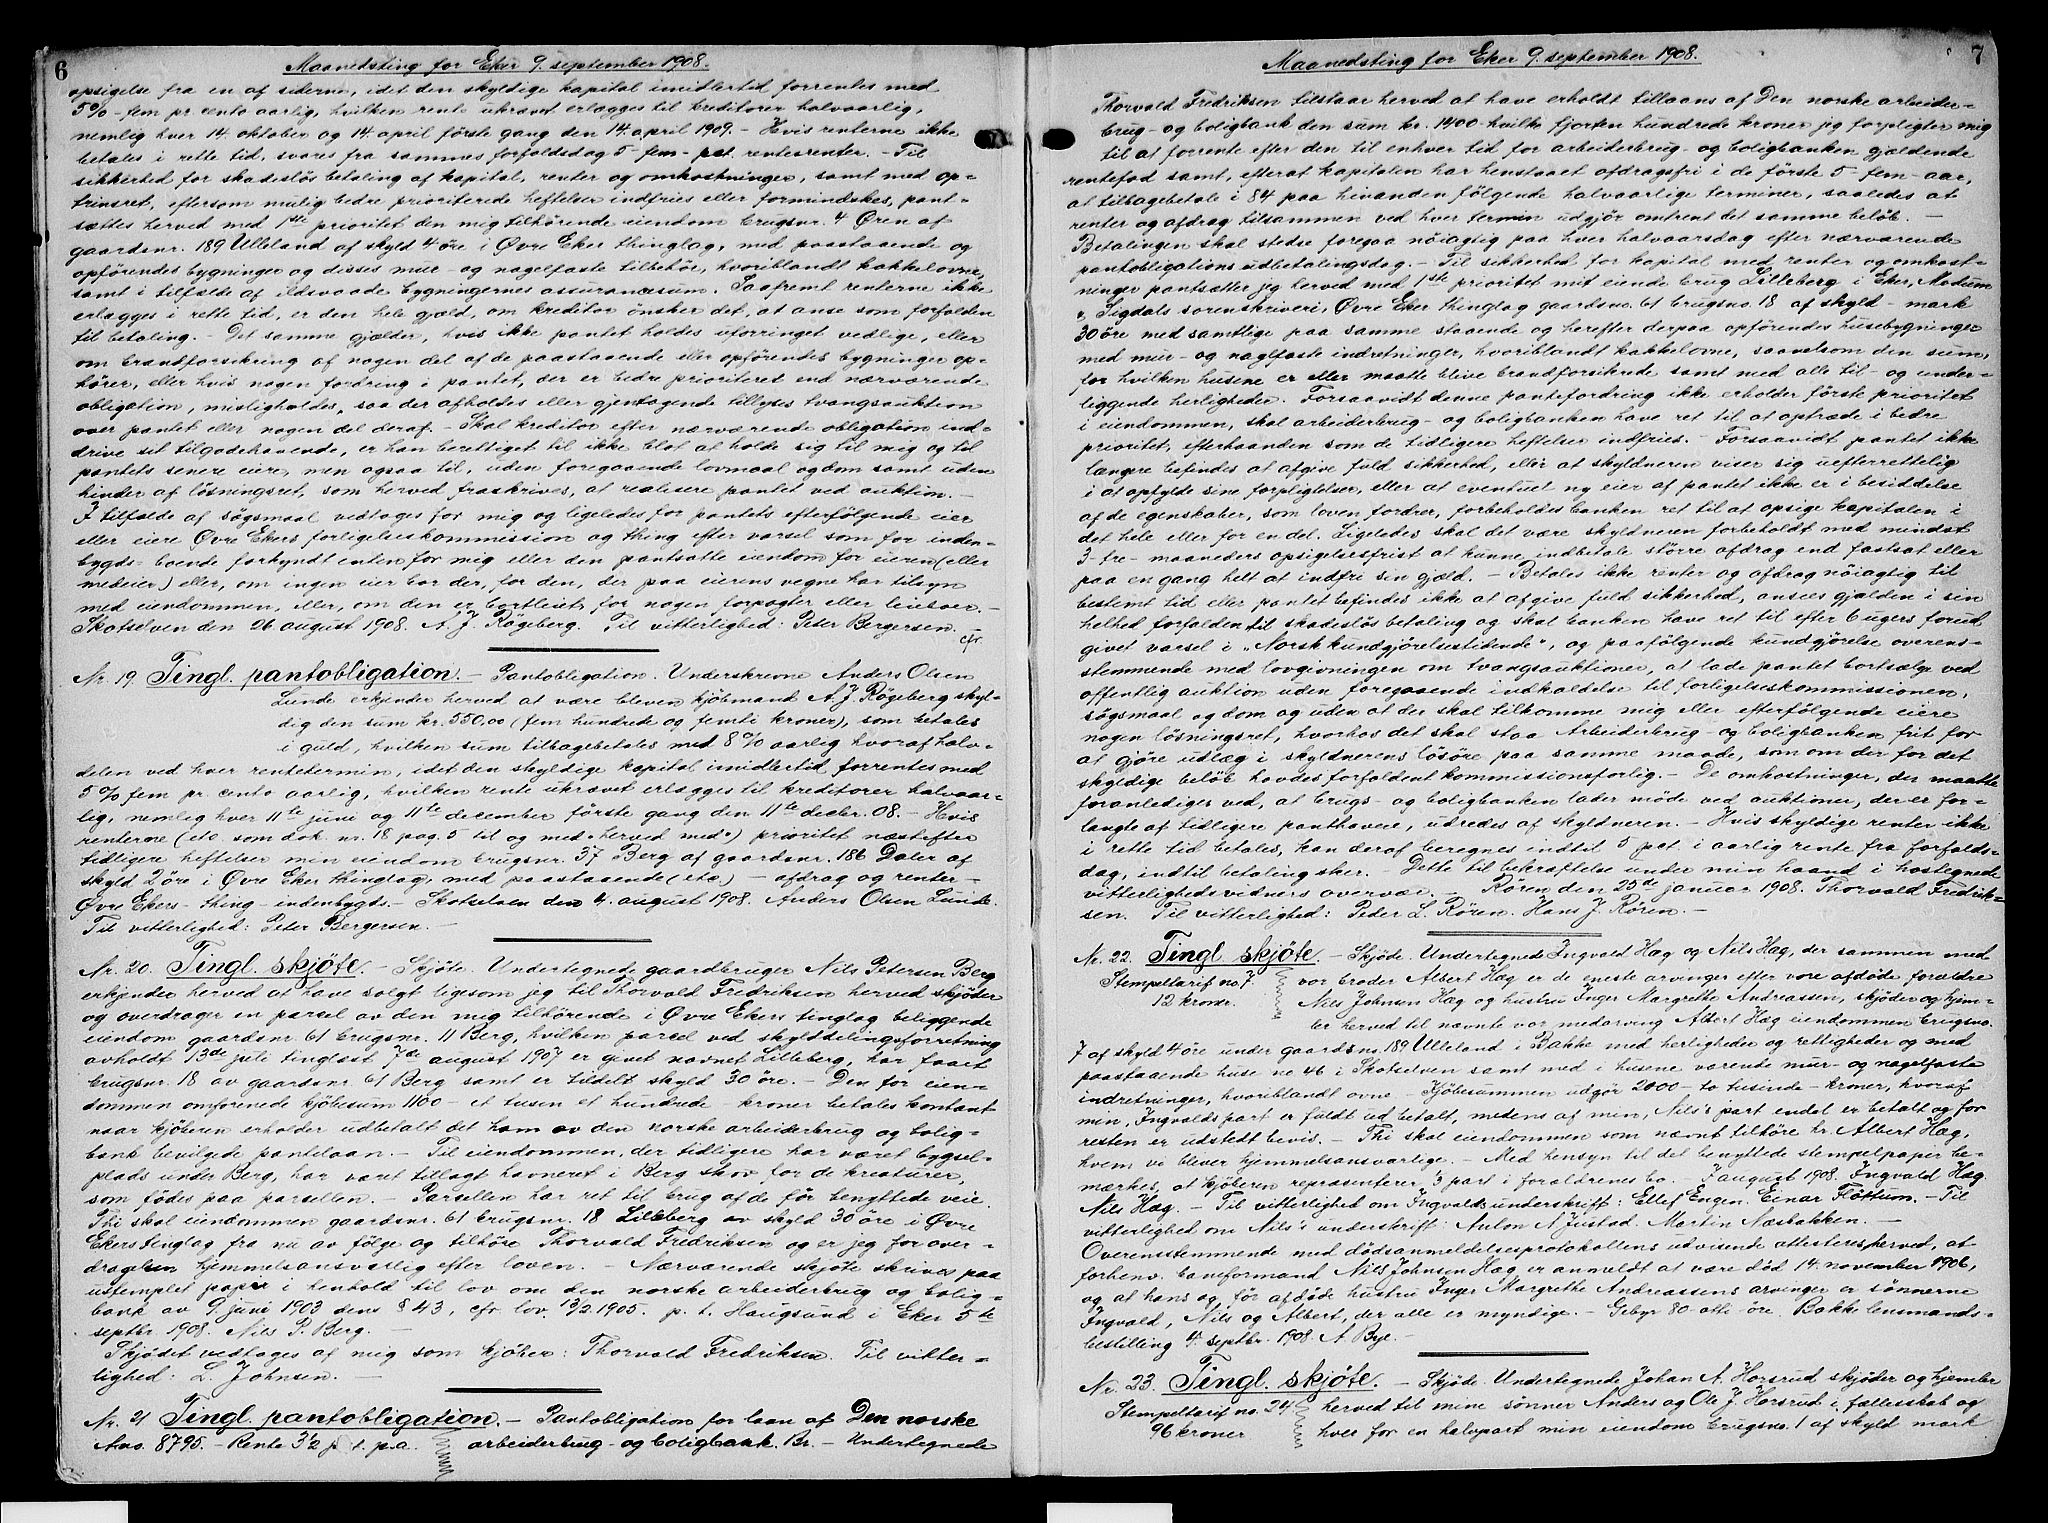 6
Maanedsting for Eker 9. september 1908.
opsigelse fra en af siderne, idet den skyldige kapital imidlertid forrentes med
5% - fem pr. cento aarlig, hvilken rente ukrævet erlægges til kreditorer halvaarlig,
nemlig hver 14. oktober og 14 april første gang den 14. april 1909. - Hvis renterne ikke
betales i rette tid, svares fra sammes forfaldsdag 5 - fem - pct. rentesrenter. - Til
sikkerhed for skadesløs betaling af kapital, renter og omkostninger, samt med op-
trinsret, eftersom mulig bedre prioriterede heftelser indfries eller formindskes, pant-
sættes herved med 1ste prioritet den mig tilhørende eiendom brugsnr. 4 Øren af
gaardsnr. 189 Ulleland af skyld 4 øre i Øvre Eker thinglag, med paastaaende og
opførendes bygninger og disses mur- og nagelfaste tilbehør, hvoriblandt kakkelovne,
samt i tilfælde af ildsvaade bygningernes assurancesum. Saafremt renterne ikke
erlægges i rette tid, er den hele gjæld, om kreditor ønsker det, at anse som forfalden
til betaling. - Det samme gjælder, hvis ikke pantet holdes uforringet vedlige, eller
om brandforsikring af nogen del af de paastaaende eller opførendes bygninger op-
hører, eller hvis nogen fordring i pantet, der er bedre prioriteret end nærværende
obligation, misligholdes, saa der afholdes eller gjentagende tillyses tvangsauktion
over pantet eller nogen del deraf. - Skal kreditor efter nærværende obligation ind-
drive sit tilgodehavende, er han berettiget til ikke blot at holde sig til mig og til
pantets senere eiere, men ogsaa til, uden foregaaende lovmaal og dom samt uden
hinder af løsningsret, som herved fraskrives, at realisere pantet ved auktion. -
I tilfælde af søgsmaal vedtages for mig og ligeledes for pantets efterfølgende eier
eller eiere Øvre Ekers forligelseskommission og thing efter varsel som for inden-
bygds- boende forkyndt enten for mig eller den pantsatte eiendom for eieren (eller
medeier) eller, om ingen eier bor der, for den, der paa eierens vegne har tilsyn
med eiendommen, eller, om den er bortleiet, for nogen forpagter eller leieboer. -
Skotselven den 26. august 1908. A. J. Røgeberg. Til vitterlighed: Peter Bergersen.
cfr.
Nr. 19. Tingl. pantobligation. - Pantobligation. Underskrevne Anders Olsen
Lunde erkjender herved at være bleven kjøbmand A. J. Røgeberg skyl-
dig den sum kr. 550,00 (fem hundrede og femti kroner), som betales
i guld, hvilken sum tilbagebetales med 8% aarlig hvoraf halv-
delen ved hver rentetermin, idet den skyldige kapital imidlertid forrentes med
5% fem pr. cento aarlig, hvilken rente ukrævet erlægges til kreditorer halvaar-
lig, nemlig hver 11te juni og 11te december første gang den 11te decbr. 08. - Hvis
renterne (etc. som dok. nr. 18 pag. 5 til og med "herved med") prioritet næst efter
tidligere heftelser min eiendom brugsnr. 37 Berg af gaardsnr. 186 Daler af
skyld 2 øre i Øvre Eker thinglag, med paastaaende (etc.) - afdrag og renter -
Øvre Ekers - thing - indenbygds. - Skotselven den 4. august 1908. Anders Olsen Lunde.
Til vitterlighed: Peter Bergersen. -
Nr. 20. Tingl. skjøte. - Skjøte. Undertegnede gaardbruger Nils Petersen Berg
erkjender herved at have solgt ligesom jeg til Thorvald Fredriksen herved skjøder
og overdrager en parsel av den mig tilhørende i Øvre Ekers tinglag beliggende
eiendom gaardsnr. 61 brugsnr. 11 Berg, hvilken parsel ved skylddelingsforretning
avholdt 13de juli tinglæst 7de august 1907 er givet navnet Lilleberg, har faaet
brugsnr. 18 av gaardsnr. 61 Berg samt er tildelt skyld 30 øre. - Den for eien-
dommen omforenede kjøbesum 1100 - et tusen et hundrede - kroner betales kontant
naar kjøberen erholder udbetalt det ham av den norske arbeiderbrug og bolig-
bank bevilgede pantelaan. - Til eiendommen, der tidligere har været bygsel-
plads under Berg, har været tillagt havneret i Berg skov for de kreaturer,
som fødes paa parsellen. - Parsellen har ret til brug af de før benyttede veie.
Thi skal eiendommen gaardsnr. 61 brugsnr. 18 Lilleberg av skyld 30 øre i Øvre
Ekers tinglag fra nu av følge og tilhøre Thorvald Fredriksen og er jeg for over-
dragelsen hjemmelsansvarlig efter loven. - Nærværende skjøte skrives paa
ustemplet papir i henhold til lov om den norske arbeiderbrug og bolig-
bank av 9. juni 1903 dens § 43, cfr. lov 13/2 1905. p. t. Haugsund i Eker 5te
septbr. 1908. Nils P. Berg.
Skjødet vedtages af mig som kjøber: Thorvald Fredriksen. Til vitter-
lighed: L. Johnsen. -
Nr. 21 Tingl. pantobligation. - Pantobligation for laan af Den norske
Ans. 8795. - Rente 3½ p. t. p.a. arbeiderbrug- og boligbank. Br. - Undertegnede
7
Maanedsting for Eker 9. september 1908.
Thorvald Fredriksen tilstaar herved at have erholdt tillaans af Den norske arbeider-
brug- og boligbank den sum kr. 1400 hvilke fjorten hundrede kroner jeg forpligter mig
til at forrente efter den til enhver tid for arbeiderbrug- og boligbanken gjældende
rentefod samt, efterat kapitalen har henstaaet afdragsfri i de første 5 - fem - aar,
at tilbagebetale i 84 paa hinanden følgende halvaarlige terminer, saaledes at
renter og afdrag tilsammen ved hver termin udgjør omtrent det samme beløb. -
Betalingen skal stedse foregaa nøiagtig paa hver halvaarsdag efter nærværende
pantobligations udbetalingsdag. - Til sikkerhed for kapital med renter og omkost-
ninger pantsætter jeg herved med 1ste prioritet mit eiende brug Lilleberg i Eker, Modum
og Sigdals sorenskriveri, Øvre Eker thinglag gaardsno. 61 brugsno. 18 af skyld - mark
30 øre med samtlige paa samme staaende og herefter derpaa opførendes husebygninger
med mur- og naglfaste indretninger, hvoriblandt kakkelovne, saavelsom den sum,
for hvilken husene er eller maatte blive brandforsikrede samt med alle til- og under-
liggende herligheder. Forsaavidt denne pantefordring ikke erholder første prioritet
i eiendommen, skal arbeiderbrug- og boligbanken have ret til at optræde i bedre
prioritet, efterhaanden som de tidligere heftelser indfries. - Forsaavidt pantet ikke
længere befindes at afgive fuld sikkerhed, eller at skyldneren viser sig uefterrettelig
i at opfylde sine forpligtelser, eller at eventuel ny eier af pantet ikke er i besiddelse
af de egenskaber, som loven fordrer, forbeholdes banken ret til at opsige kapitalen i
det hele eller for en del. Ligeledes skal det være skyldneren forbeholdt med mindst
3 - tre - maaneders opsigelsesfrist at kunne indbetale større afdrag end fastsat eller
paa en gang helt at indfri sin gjæld. - Betales ikke renter og afdrag nøiagtig til
bestemt tid eller pantet befindes ikke at afgive fuld sikkerhed, ansees gjælden i sin
helhed forfalden til skadesløs betaling og skal banken have ret til efter 6 ugers forud
givet varsel i "Norsk kundgjørelsestidende", og paafølgende kundgjørelse overens-
stemmende med lovgivningen om tvangsauktioner, at lade pantet bortsælge ved
offentlig auktion uden foregaaende indkaldelse til forligelseskommissionen,
søgsmaal og dom og uden at der skal tilkomme mig eller efterfølgende eiere
nogen løsningsret, hvorhos det skal staa Arbeiderbrug- og boligbanken frit for
at gjøre udlæg i skyldnerens løsøre paa samme maade, som om der for det
skyldige beløb havdes forfaldent kommissionsforlig. - De omkostninger, der maatte
foranlediges ved, at brugs- og boligbanken lader møde ved auktioner, der er for-
langte af tidligere panthavere, udredes af skyldneren. - Hvis skyldige renter ikke
i rette tid betales, kan deraf beregnes indtil 5 pct. i aarlig rente fra forfalds-
dag, indtil betaling sker. - Dette til bekræftelse under min haand i hostegnede
vitterlighedsvidners overvær. - Røren den 25de januar 1908. Thorvald Fredrik-
sen. Til vitterlighed: Peder L. Røren. Hans J. Røren. -
Nr. 22. Tingl. skjøte. - Skjøde. Undertegnede Ingvald Hæg og Nils Hæg, der sammen med
Stempeltarif no. 7. vor broder Albert Hæg er de eneste arvinger efter vore afdøde forældre
12 kroner. Nils Johnsen Hæg og hustru Inger Margrethe Andreassen, skjøder og hjem-
ler herved til nævnte vor medarving Albert Hæg eiendommen brugsno.
7 af skyld 4 øre under gaardsno. 189 Ulleland i Bakke med herligheder og rettigheder og med
paastaaende huse no 46 i Skotselven samt med i husene værende mur- og nagelfaste
indretninger, hvoriblandt ovne - Kjøbesummen udgør 2000 - to tusinde - kroner, hvoraf
min, Ingvalds part er fuldt ud betalt, medens af min, Nils's part endel er betalt og for
resten er udstedt bevis. - Thi skal eiendommen som nævnt tilhøre hr. Albert Hæg,
hvem vi blever hjemmelsansvarlige. - Med hensyn til det benyttede stempelpapir be-
mærkes, at kjøberen repræsenterer 1/3 part i forældrenes bo. - 7 august 1908. Ingvald Hæg.
Nils Hæg. - Til vitterlighed om Ingvalds underskrift: Ellef Engen. Einar Fløttum. - Til
vitterlighed om Nils's underskrift: Anton N. Justad. Martin Næsbakken. -
Overensstemmende med dødsanmeldelsesprotokollens udvisende attesteres herved, at
forhenv. baneformand Nils Johnsen Hæg er anmeldt at være død 14. november 1906,
og at hans og før afdøde hustru Inger Margrethe Andreassens arvinger er sønnerne
Ingvald, Nils og Albert, der alle er myndige. - Gebyr 80 otti øre. Bakke lensmands-
bestilling 4. septbr. 1908. A. Bye. -
Nr. 23. Tingl. skjøte. - Skjøde. Undertegnede Johan A. Horsrud skjøder og hjemler
Stempeltarif no. 24 herved til mine sønner Anders og Ole J. Horsrud i fællesskab og
96 kroner hver for en halvpart min eiendom brugsno. 1 af skyld mark